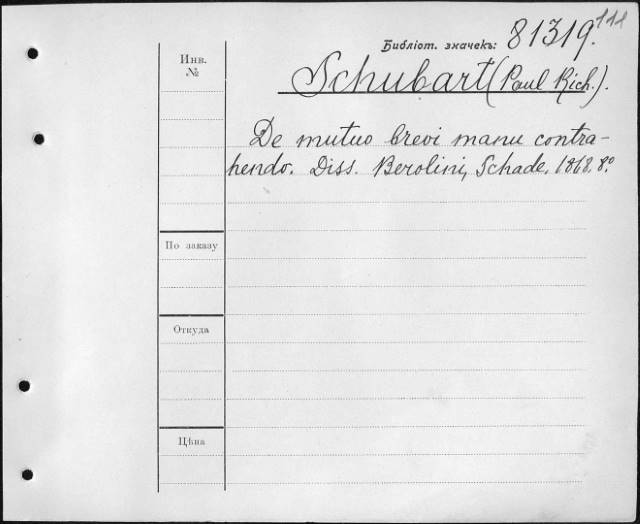 Библіот. значекъ: 81319.
Инв. №
Schubart (Paul Rich.).
De mutuo brevi manu contra-
hendo. Diss. Berolini, Schade, 1868. 8º
По заказу
Откуда
Цѣна